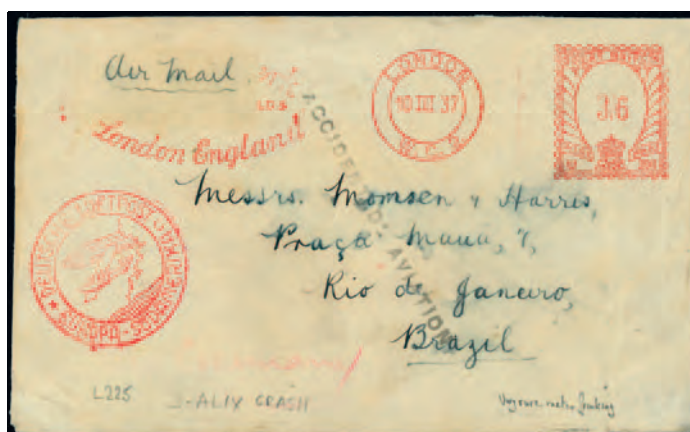 Air Mail
London England
LONDON
10 III 37
W.C.2
36
ACCIDENT D'AVIATION
Messrs. Momsen & Harris,
Praça Maua, 7,
Rio de Janeiro,
Brazil
DEUTSCHE LUFTPOST
EUROPA-SÜDAMERIKA
L225
-ALIX CRASH